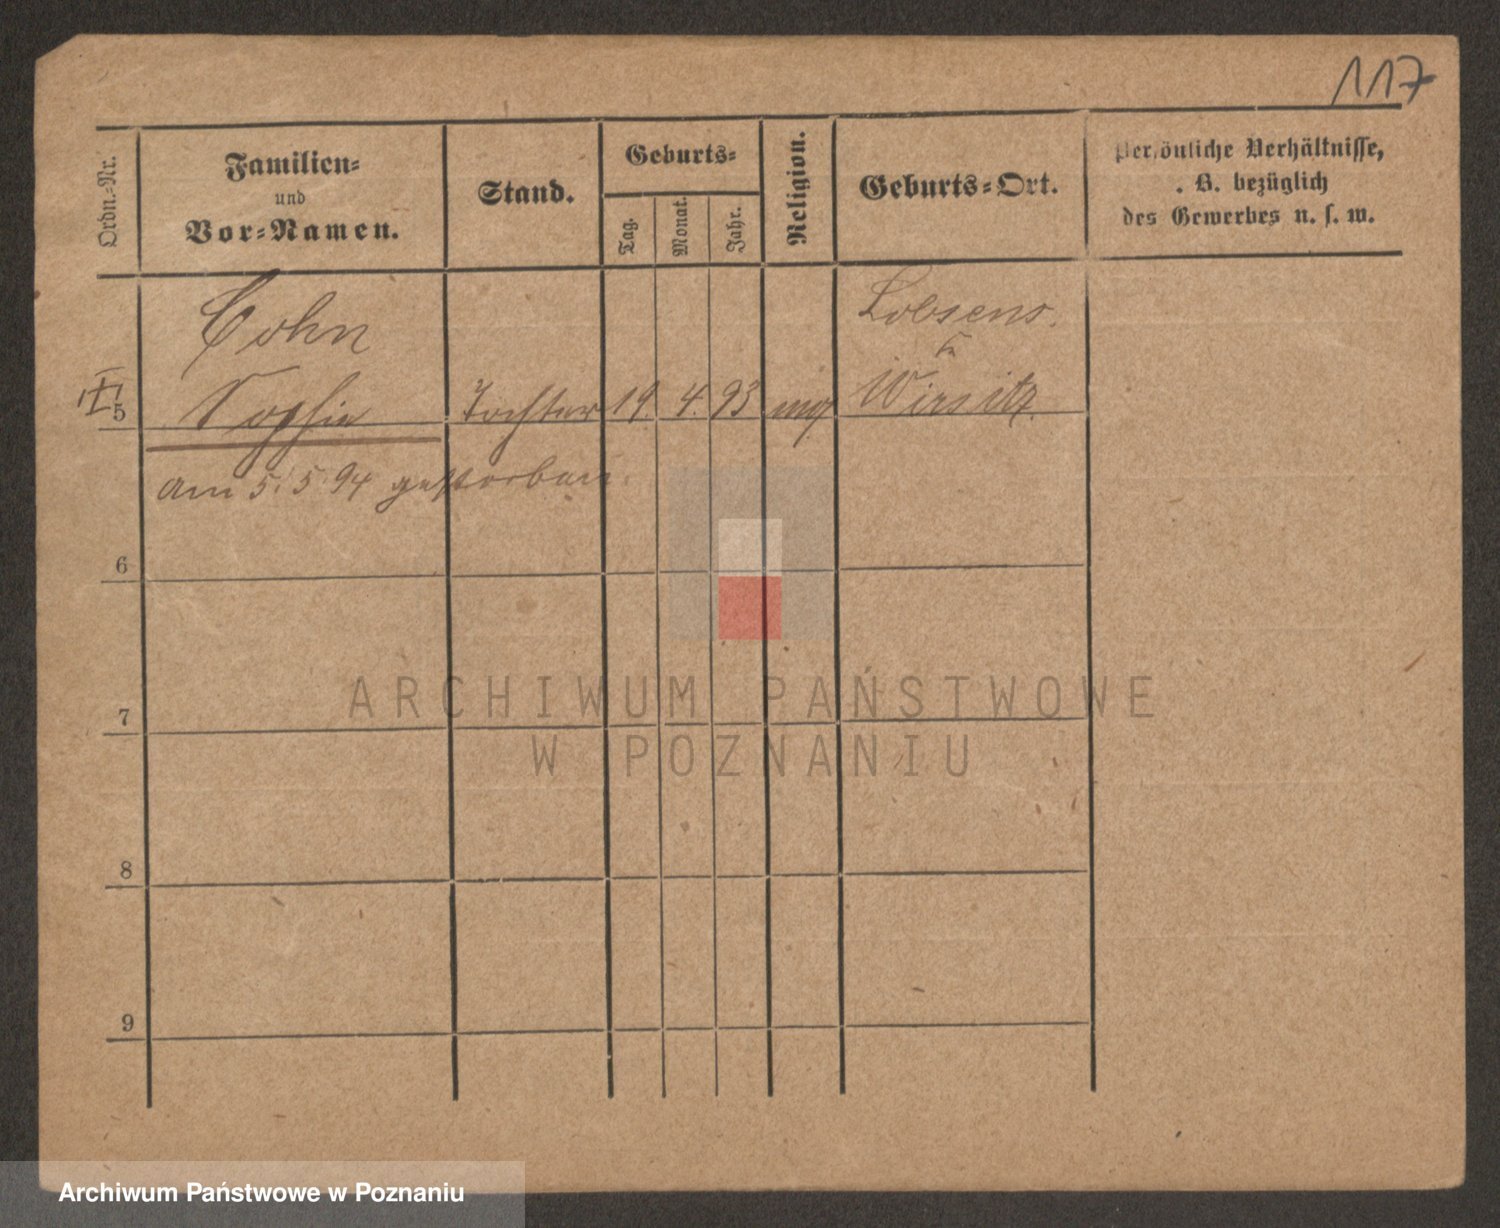 117
Ordn.-Nr.
Familien-
und
Vor-Namen.
Stand.
Geburts-
Tag.
Monat.
Jahr.
Religion.
Geburts-Ort.
Persönliche Verhältnisse,
. B. bezüglich
des Gewerbes u. s. w.
Cohn
Lobsens
5 Sophie Tochter 19. 4. 93 Wirsitz.
am 5. 5. 94 gestorben.
6
7
8
9
ARCHIWUM PAŃSTWOWE
W POZNANIU
Archiwum Państwowe w Poznaniu